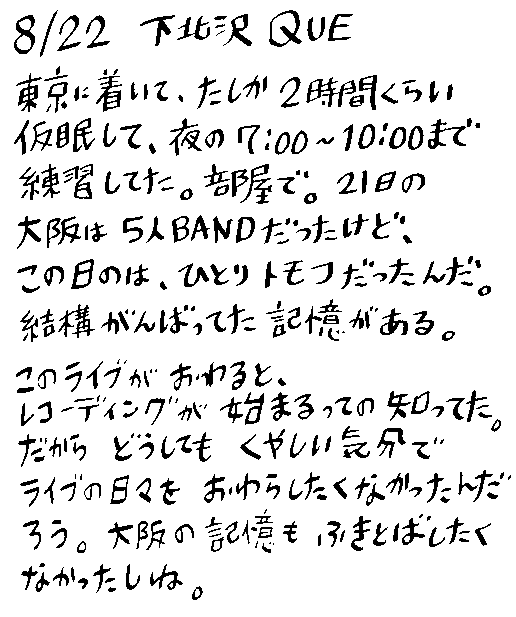 8/22 下北沢 QUE
東京に着いて、たしか2時間くらい
仮眠して、夜の7:00~10:00まで
練習してた。部屋で。21日の
大阪は5人BANDだったけど、
この日のは、ひとりトモフだったんだ。
結構がんばってた記憶がある。
このライブがおわると、
レコーディングが始まるっての知ってた。
だからどうしてもくやしい気分で
ライブの日々をおわらしたくなかったんだ
ろう。大阪の記憶もふきとばしたく
なかったしね。